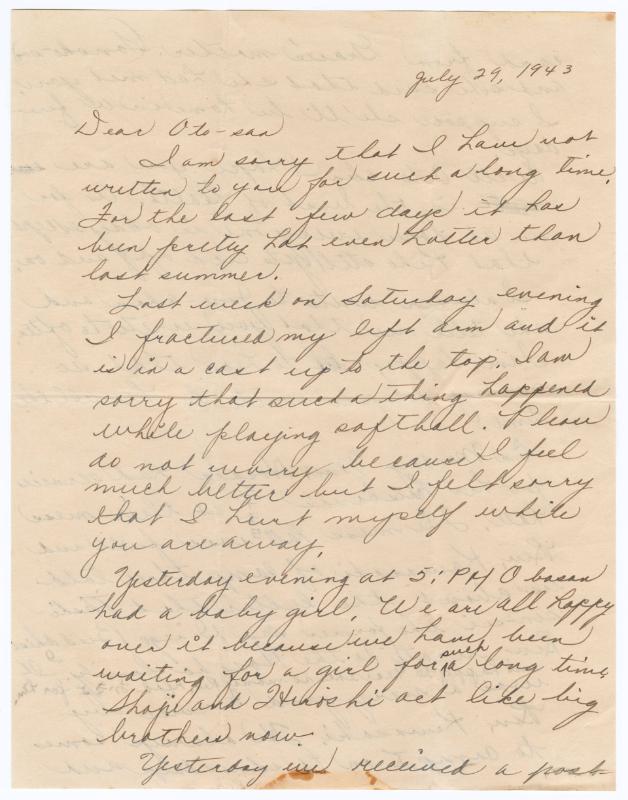 July 29, 1943
Dear Oto-san
I am sorry that I have not
written to you for such a long time.
For the last few days it has
been pretty hot even hotter than
last summer.
Last week on Saturday evening
I fractured my left arm and it
is in a cast up to the top. I am
sorry that such a thing happened
while playing softball. Please
do not worry because I feel
much better but I felt sorry
that I hurt myself while
you are away.
Yesterday evening at 5: PM Obasan
had a baby girl. We are all happy
over it because we have been
waiting for a girl for such a long time.
Shoji and Hiroshi act like big
brothers now.
Yesterday we received a post-